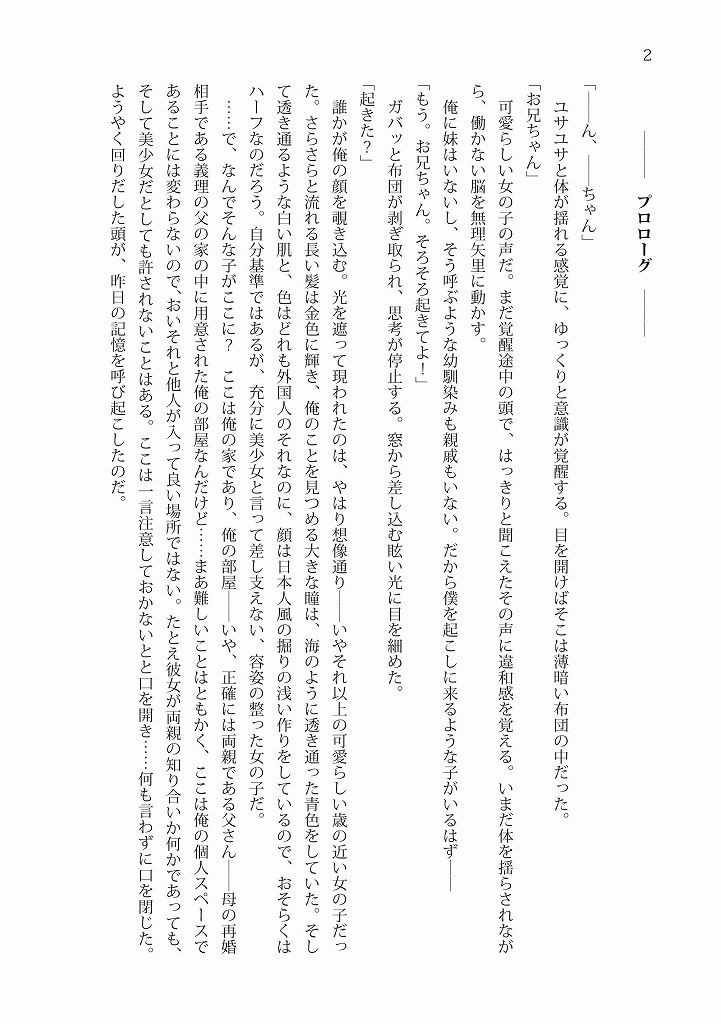 2
――― プロローグ ―――
「――ん、――ちゃん」
　ユサユサと体が揺れる感覚に、ゆっくりと意識が覚醒する。目を開けばそこは薄暗い布団の中だった。
「お兄ちゃん」
　可愛らしい女の子の声だ。まだ覚醒途中の頭で、はっきりと聞こえたその声に違和感を覚える。いまだ体を揺らされなが
ら、働かない脳を無理矢里に動かす。
　俺に妹はいないし、そう呼ぶような幼馴染みも親戚もいない。だから僕を起こしに来るような子がいるはず――
「もう。お兄ちゃん。そろそろ起きてよ！」
　ガバッと布団が剥ぎ取られ、思考が停止する。窓から差し込む眩い光に目を細めた。
「起きた？」
　誰かが俺の顔を覗き込む。光を遮って現われたのは、やはり想像通り――いやそれ以上の可愛らしい歳の近い女の子だっ
た。さらさらと流れる長い髪は金色に輝き、俺のことを見つめる大きな瞳は、海のように透き通った青色をしていた。そし
て透き通るような白い肌と、色はどれも外国人のそれなのに、顔は日本人風の掘りの浅い作りをしているので、おそらくは
ハーフなのだろう。自分基準ではあるが、充分に美少女と言って差し支えない、容姿の整った女の子だ。
　……で、なんでそんな子がここに？　ここは俺の家であり、俺の部屋――いや、正確には両親である父さん――母の再婚
相手である義理の父の家の中に用意された俺の部屋なんだけど……まあ難しいことはともかく、ここは俺の個人スペースで
あることには変わらないので、おいそれと他人が入って良い場所ではない。たとえ彼女が両親の知り合いか何かであっても、
そして美少女だとしても許されないことはある。ここは一言注意しておかないとと口を開き……何も言わずに口を閉じた。
ようやく回りだした頭が、昨日の記憶を呼び起こしたのだ。